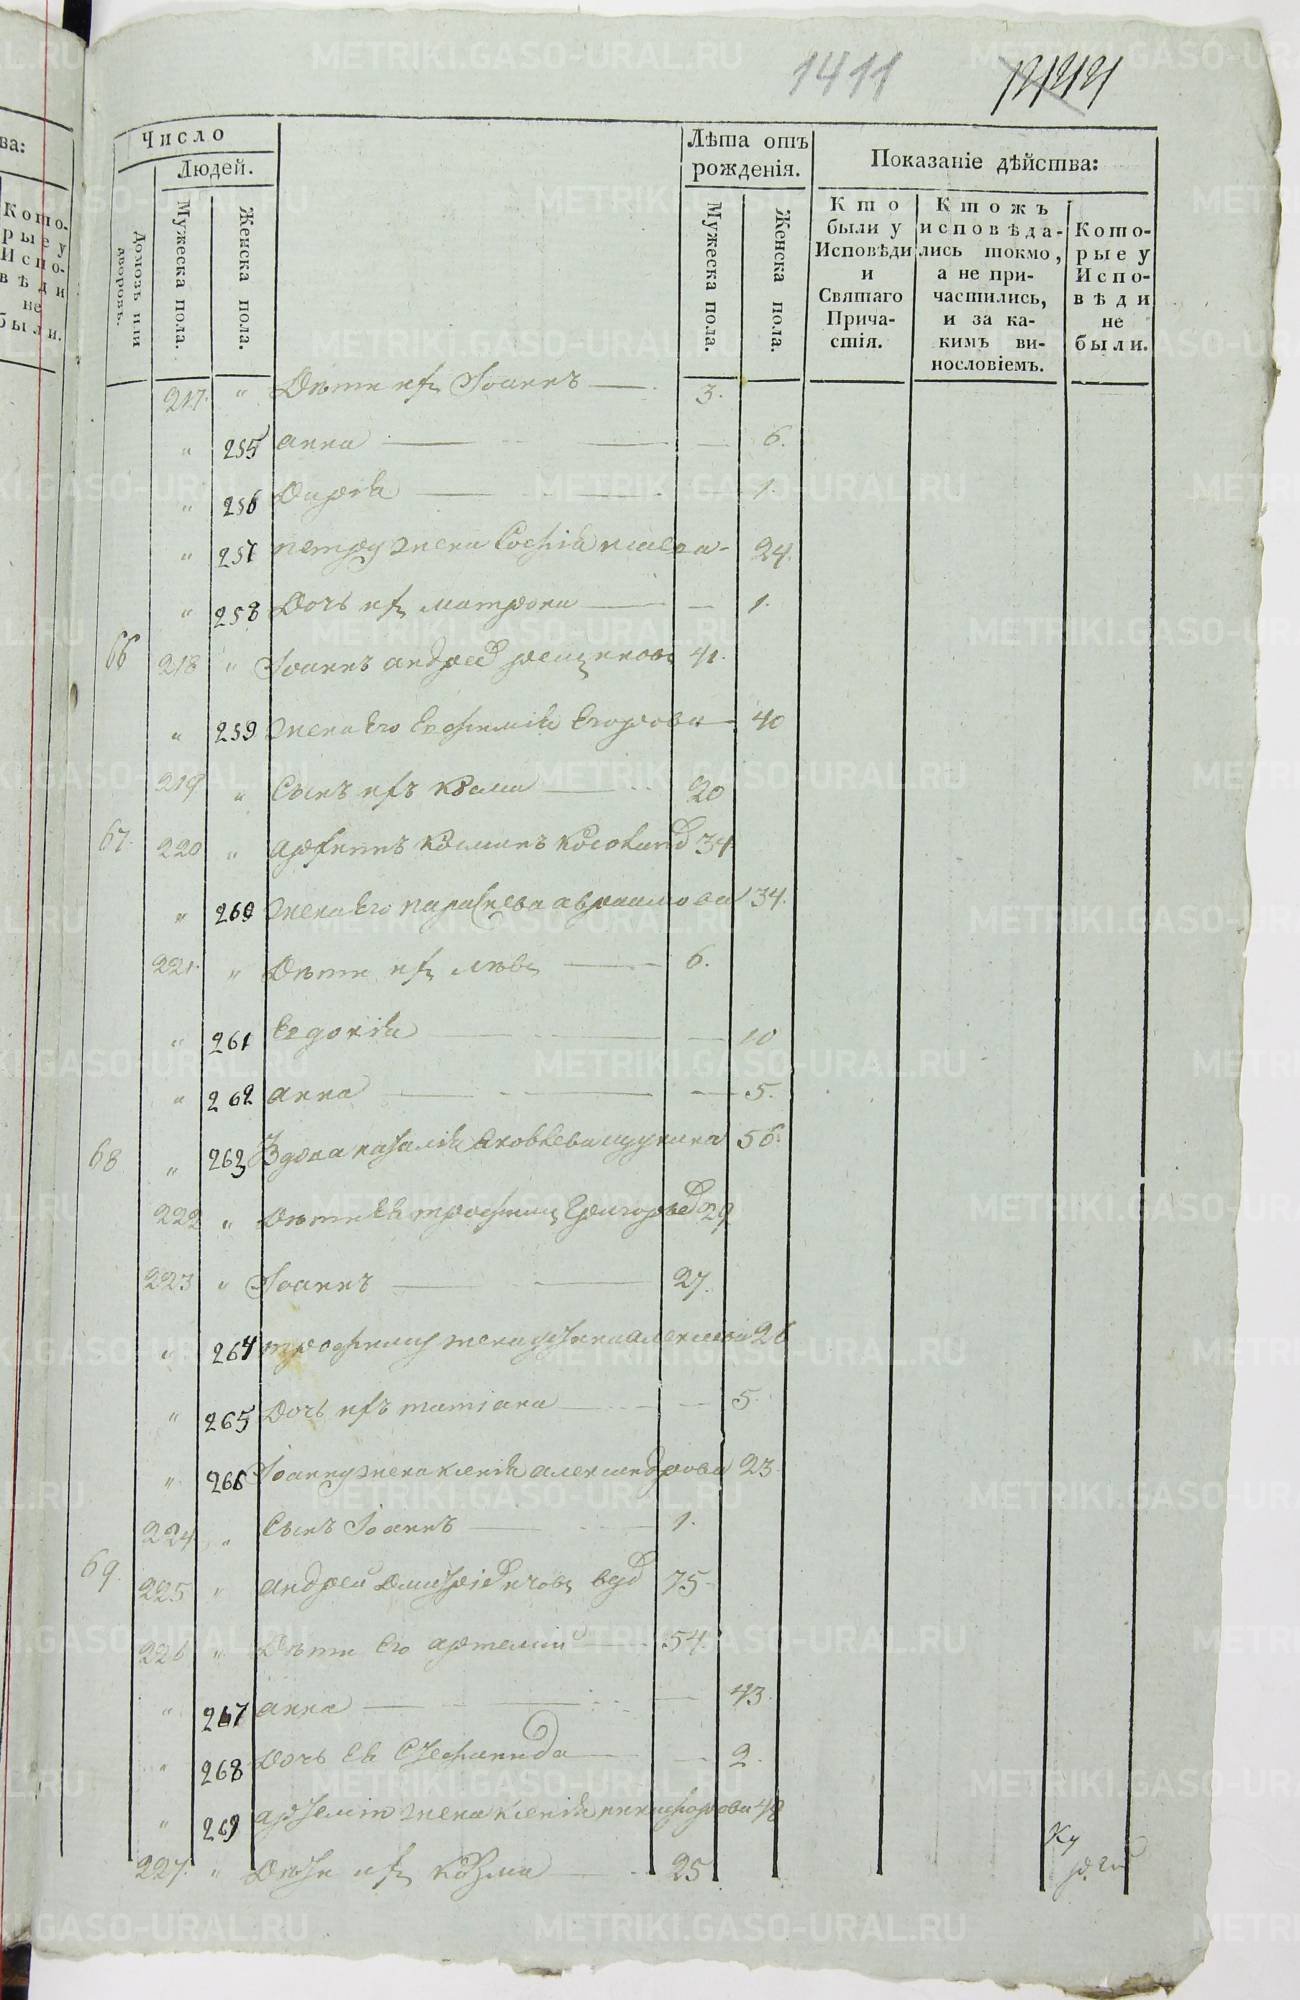 1411 1244
Число
Людей.
Домовъ или дворовъ.
Мужеска пола.
Женска пола.
Лѣта отъ рожденія.
Мужеска пола.
Женска пола.
Показаніе дѣйства:
Кто были у Исповѣди и Святаго Прича-стія.
Ктожъ исповѣда-лись токмо, а не при-частились, и за ка-кимъ ви-нословіемъ.
Кото-рые у Испо-вѣди не были.
217. " Дѣти ихъ Іоаннъ 3.
" 255 анна 6.
" 256 Дарія 1.
" 257 петру жена Софія 24.
" 258 Дочь ихъ матрона 1.
66 218 " Іоаннъ андреев 41.
" 259 жена Его Евфимія Егорова 40
219 " Сынъ ихъ козма 20
67. 220 " архипъ Козминъ 34
" 260 жена Его параскева авраамова 34.
221. " Дѣти ихъ левъ 6.
" 261 Евдокія 10
" 262 анна 5.
68 " 263 Вдова наталія Яковлева щукина 56.
222 " Дѣти Ея трофимъ Григорьев 29
223 " Іоаннъ 27.
" 264 трофиму жена устина алексеева 26
" 265 Дочь ихъ татіана 5.
" 266 Іоанну жена ксенія александрова 23
224 " Сынъ Іоаннъ 1.
69. 225 " андрей вдов 75
226 " Дѣти Его артемій 54.
" 267 анна 43.
" 268 Дочь Ея Стефанида 2.
" 269 артемію жена ксенія никифорова 48
227. " Дѣти ихъ козма 25